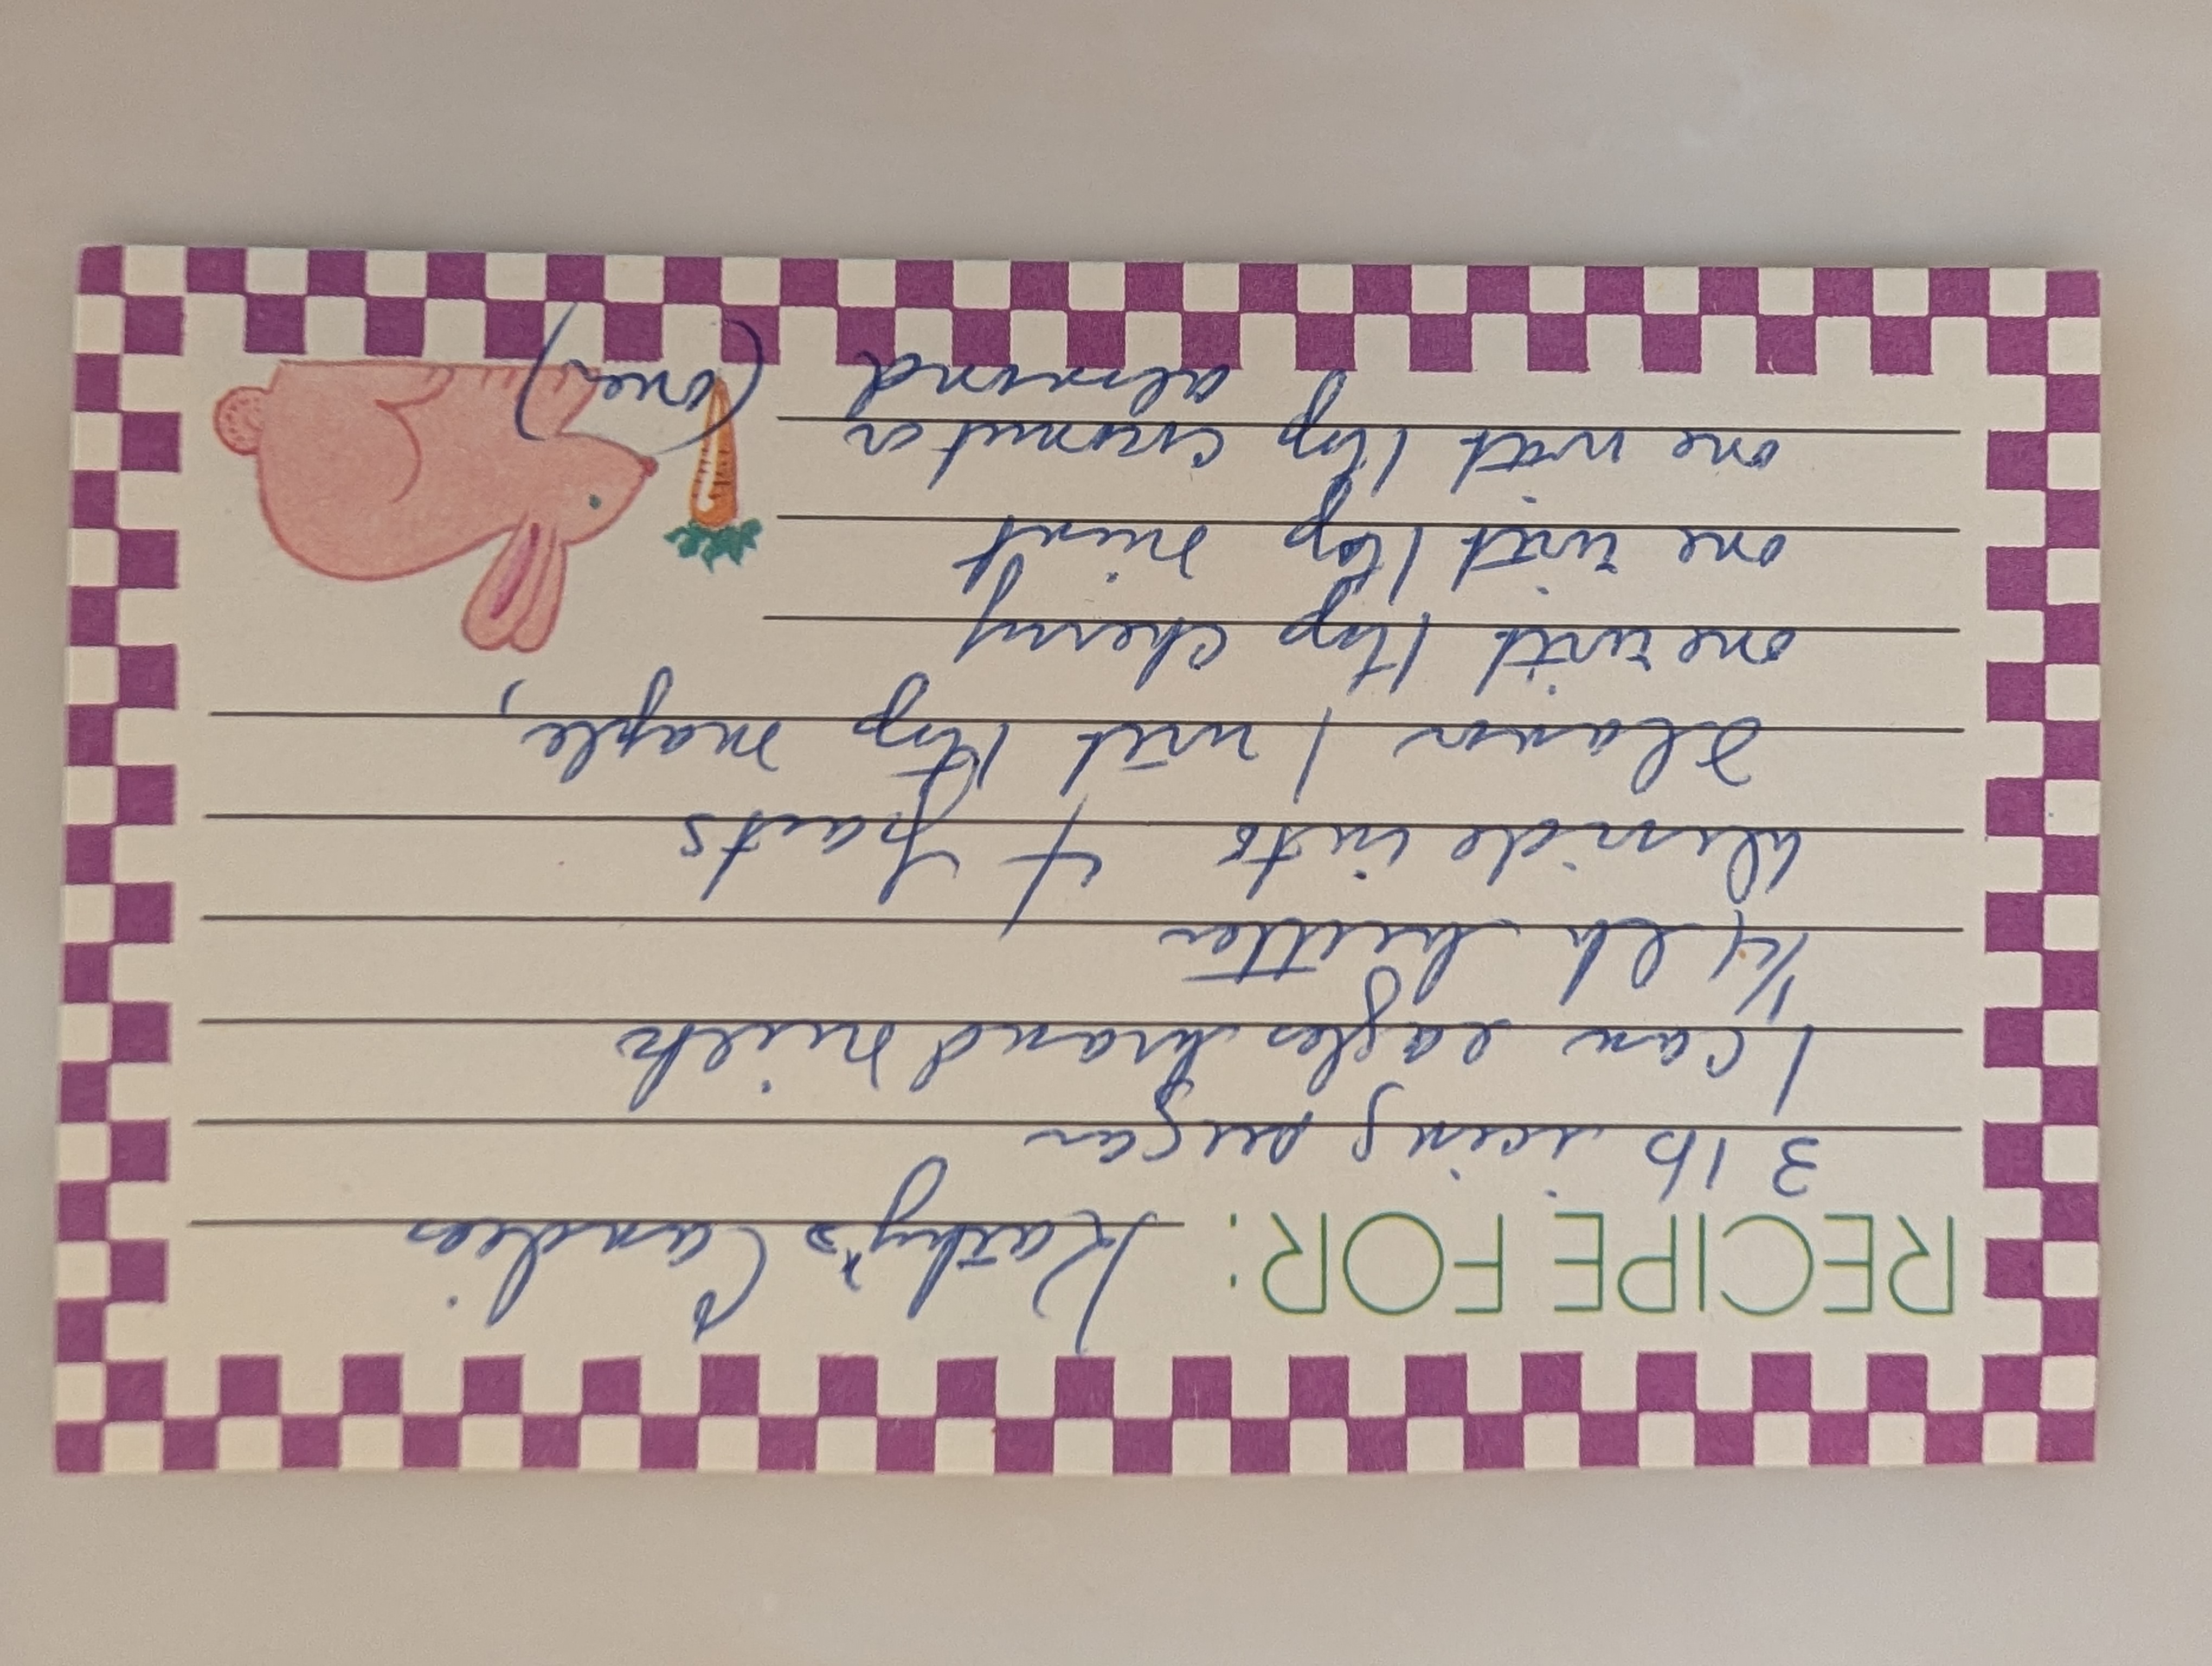 RECIPE FOR: Kathy's Candies
3 lb icing sugar
1 can eagles brand milk
1/4 lb butter
Divide into 4 parts
Flavor 1 with 1 tsp maple,
one with 1 tsp cherry
one with 1 tsp mint
one with 1 tsp coconut or
almond (over)